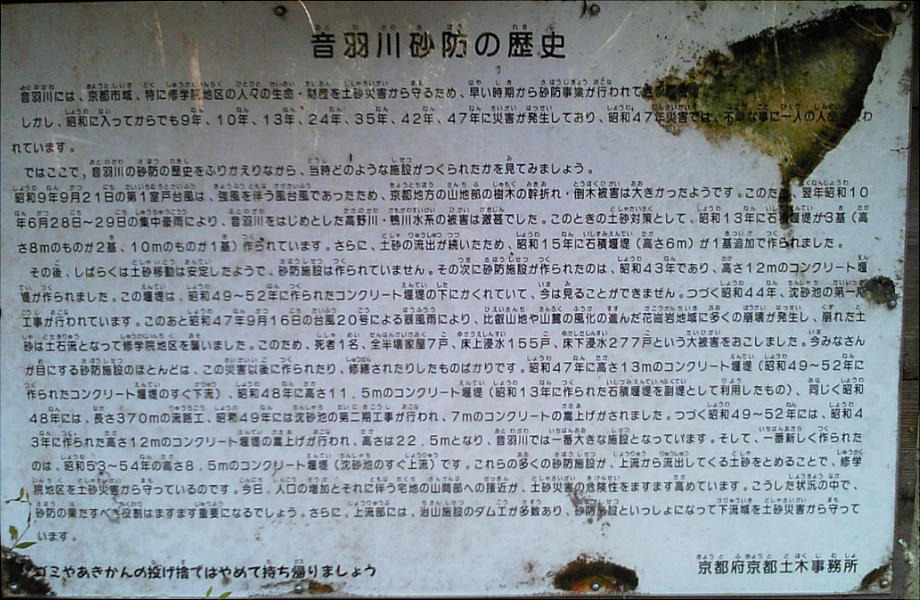 音羽川砂防の歴史
音羽川には、京都市域、特に修学院地区の人々の生命・財産を土砂災害から守るため、早い時期から砂防事業が行われてき
しかし、昭和に入ってからでも9年、10年、13年、24年、35年、42年、47年に災害が発生しており、昭和47年災害では、不幸な事に一人の人命
れています。
ではここで、音羽川の砂防の歴史をふりかえりながら、当時どのような施設がつくられたかを見てみましょう。
昭和9年9月21日の第1室戸台風は、強風を伴う風台風であったため、京都地方の山地部の樹木の幹折れ・倒木被害は大きかったようです。このため、翌年昭和10
年6月28日〜29日の集中豪雨により、音羽川をはじめとした高野川・鴨川水系の被害は激甚でした。このときの土砂対策として、昭和13年に石積堰堤が3基(高
さ8mのものが2基、10mのものが1基)作られています。さらに、土砂の流出が続いたため、昭和15年に石積堰堤(高さ6m)が1基追加で作られました。
その後、しばらくは土砂移動は安定したようで、砂防施設は作られていません。その次に砂防施設が作られたのは、昭和43年であり、高さ12mのコンクリート堰
堤が作られました。この堰堤は、昭和49〜52年に作られたコンクリート堰堤の下にかくれていて、今は見ることができません。つづく昭和44年、沈砂池の第一期
工事が行われています。このあと昭和47年9月16日の台風20号による暴風雨により、比叡山地や山麓の風化の進んだ花崗岩地域に多くの崩壊が発生し、崩れた土
砂は土石流となって修学院地区を襲いました。このため、死者1名、全半壊家屋7戸、床上浸水155戸、床下浸水277戸という大被害をおこしました。今みなさん
が目にする砂防施設のほとんどは、この災害以後に作られたり、修繕されたりしたものばかりです。昭和47年に高さ13mのコンクリート堰堤(昭和49〜52年に
作られたコンクリート堰堤のすぐ下流)、昭和48年に高さ11.5mのコンクリート堰堤(昭和13年に作られた石積堰堤を副堤として利用したもの)、同じく昭和
48年には、長さ370mの流路工、昭和49年には沈砂池の第二期工事が行われ、7mのコンクリートの嵩上げがされました。つづく昭和49〜52年には、昭和4
3年に作られた高さ12mのコンクリート堰堤の嵩上げが行われ、高さは22.5mとなり、音羽川では一番大きな施設となっています。そして、一番新しく作られた
のは、昭和53〜54年の高さ8.5mのコンクリート堰堤(沈砂池のすぐ上流)です。これらの多くの砂防施設が、上流から流出してくる土砂をとめることで、修学
院地区を土砂災害から守っているのです。今日、人口の増加とそれに伴う宅地の山間部への接近が、土砂災害の危険性をますます高めています。こうした状況の中で、
砂防の果たすべき役割はますます重要になるでしょう。さらに、上流部には、治山施設のダム工が多数あり、砂防施設といっしょになって下流域を土砂災害から守って
います。
ゴミやあきかんの投げ捨てはやめて持ち帰りましょう
京都府京都土木事務所